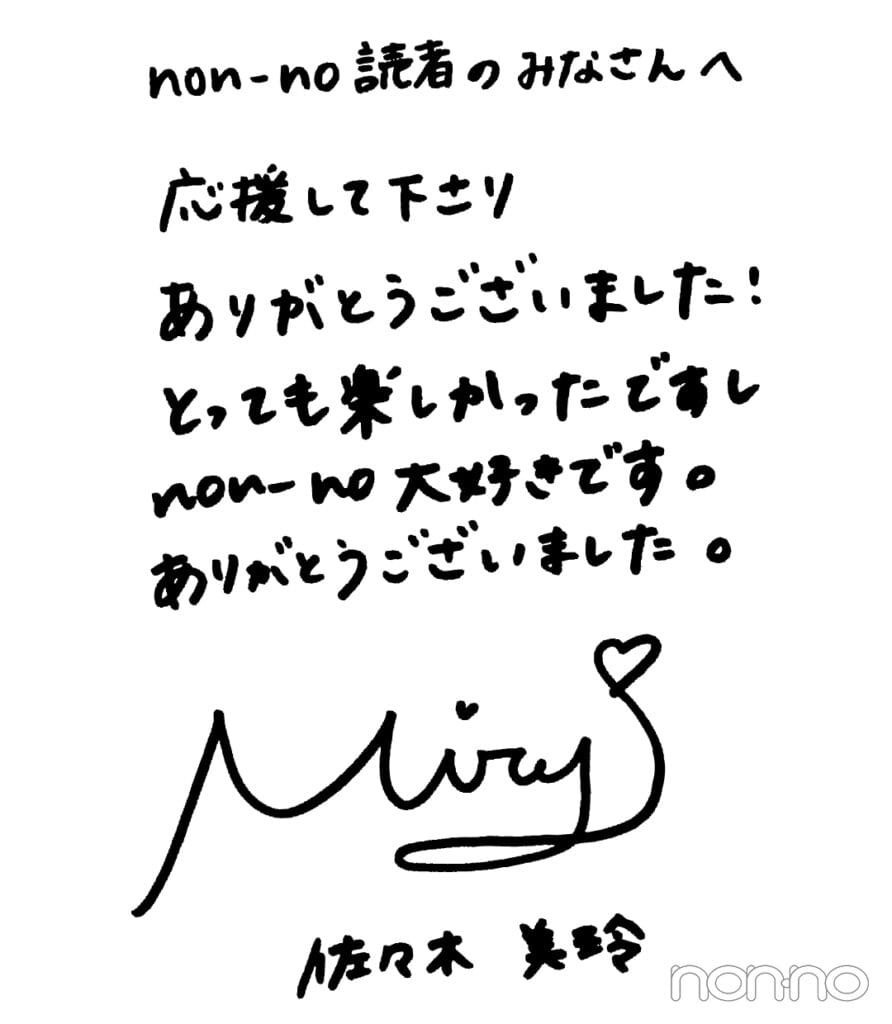 non-no 読者のみなさんへ
応援して下さり
ありがとうございました!
とっても楽しかったですし
non-no 大好きです。
ありがとうございました。
Mirey
佐々木 美玲
non-no